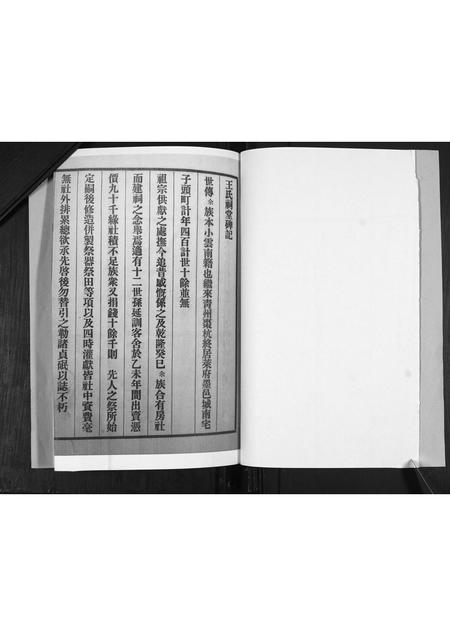 王氏祠堂碑記
世傳余族本小雲南籍也繼來青州棗杭終居萊府墨邑城南宅
子頭町計年四百計世十餘並無
祖宗供獻之處撫今追昔感慨係之及乾隆癸巳余族合有房社
而建祠之念舉焉適有十二世孫延訓客舍於乙未年間出賣憑
價九十千緣社積不足族衆又捐錢十餘千則 先人之祭所始
定嗣後修造併製祭器祭田等項以及四時灌獻皆社中資費毫
無社外排累總欲承先啓後勿替引之勒諸貞珉以誌不朽